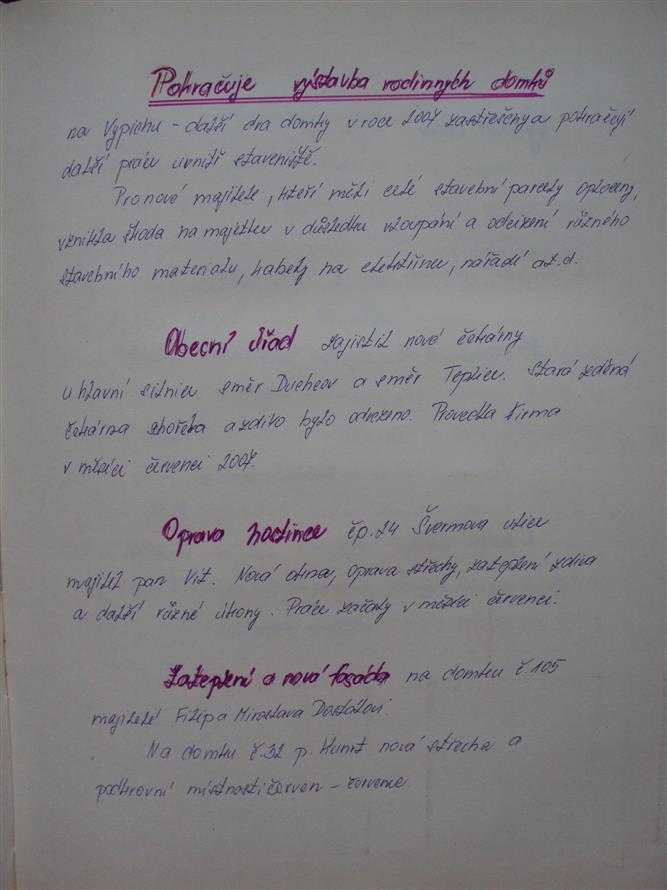 Pokračuje výstavba rodinných domků
na Vypichu - další dva domky v roce 2007 zastřešeny a pokračují
další práce uvnitř staveniště.
Pro nové majitele, kteří měli celé stavební parcely oploceny,
vznikla škoda na majetku v důsledku vloupání a odcizení různého
stavebního materialu, kabely na elektřinu, nářadí at.d.
Obecní úřad zajistil nové čekárny
u hlavní silnice směr Duchcov a směr Teplice. Stará zděná
čekárna shořela a zdivo bylo odvezeno. Provedla firma
v měsíci červenci 2007.
Oprava hostince čp. 24 Švermova ulice
majitel pan Vít. Nová okna, oprava střechy, zateplení zdiva
a další různé úkony. Práce začaly v měsíci červenci.
Zateplení a nová fasáda na domku č. 105
majitelé Filip a Miroslava Dostálovi.
Na domku č. 32 p. nová střecha a
podkrovní místnosti červen - červenec.